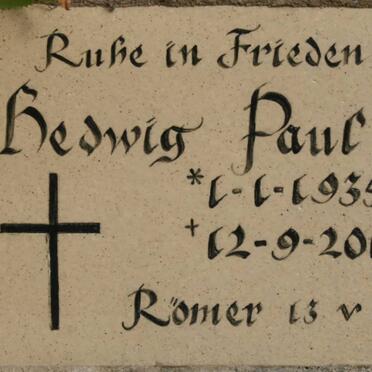 Ruhe in Frieden
Hedwig Paul
*1-1-1935
†12-9-20
Römer 13 v